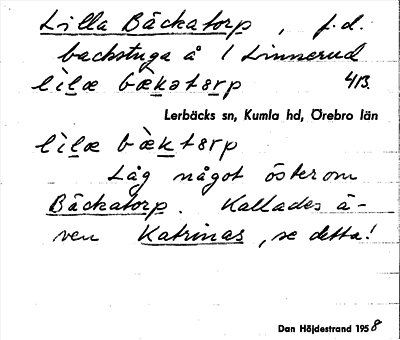 Lilla Bäckatorp, f.d.
backstuga å 1 Linnerud
lìlæ bækatɵrp 4/13.
Lerbäcks sn, Kumla hd, Örebro län
lìlæ bæktɵrp
Låg något österom
Bäckatorp. Kallades ä-
ven Katrinas, se detta!
Dan Höjdestrand 1958